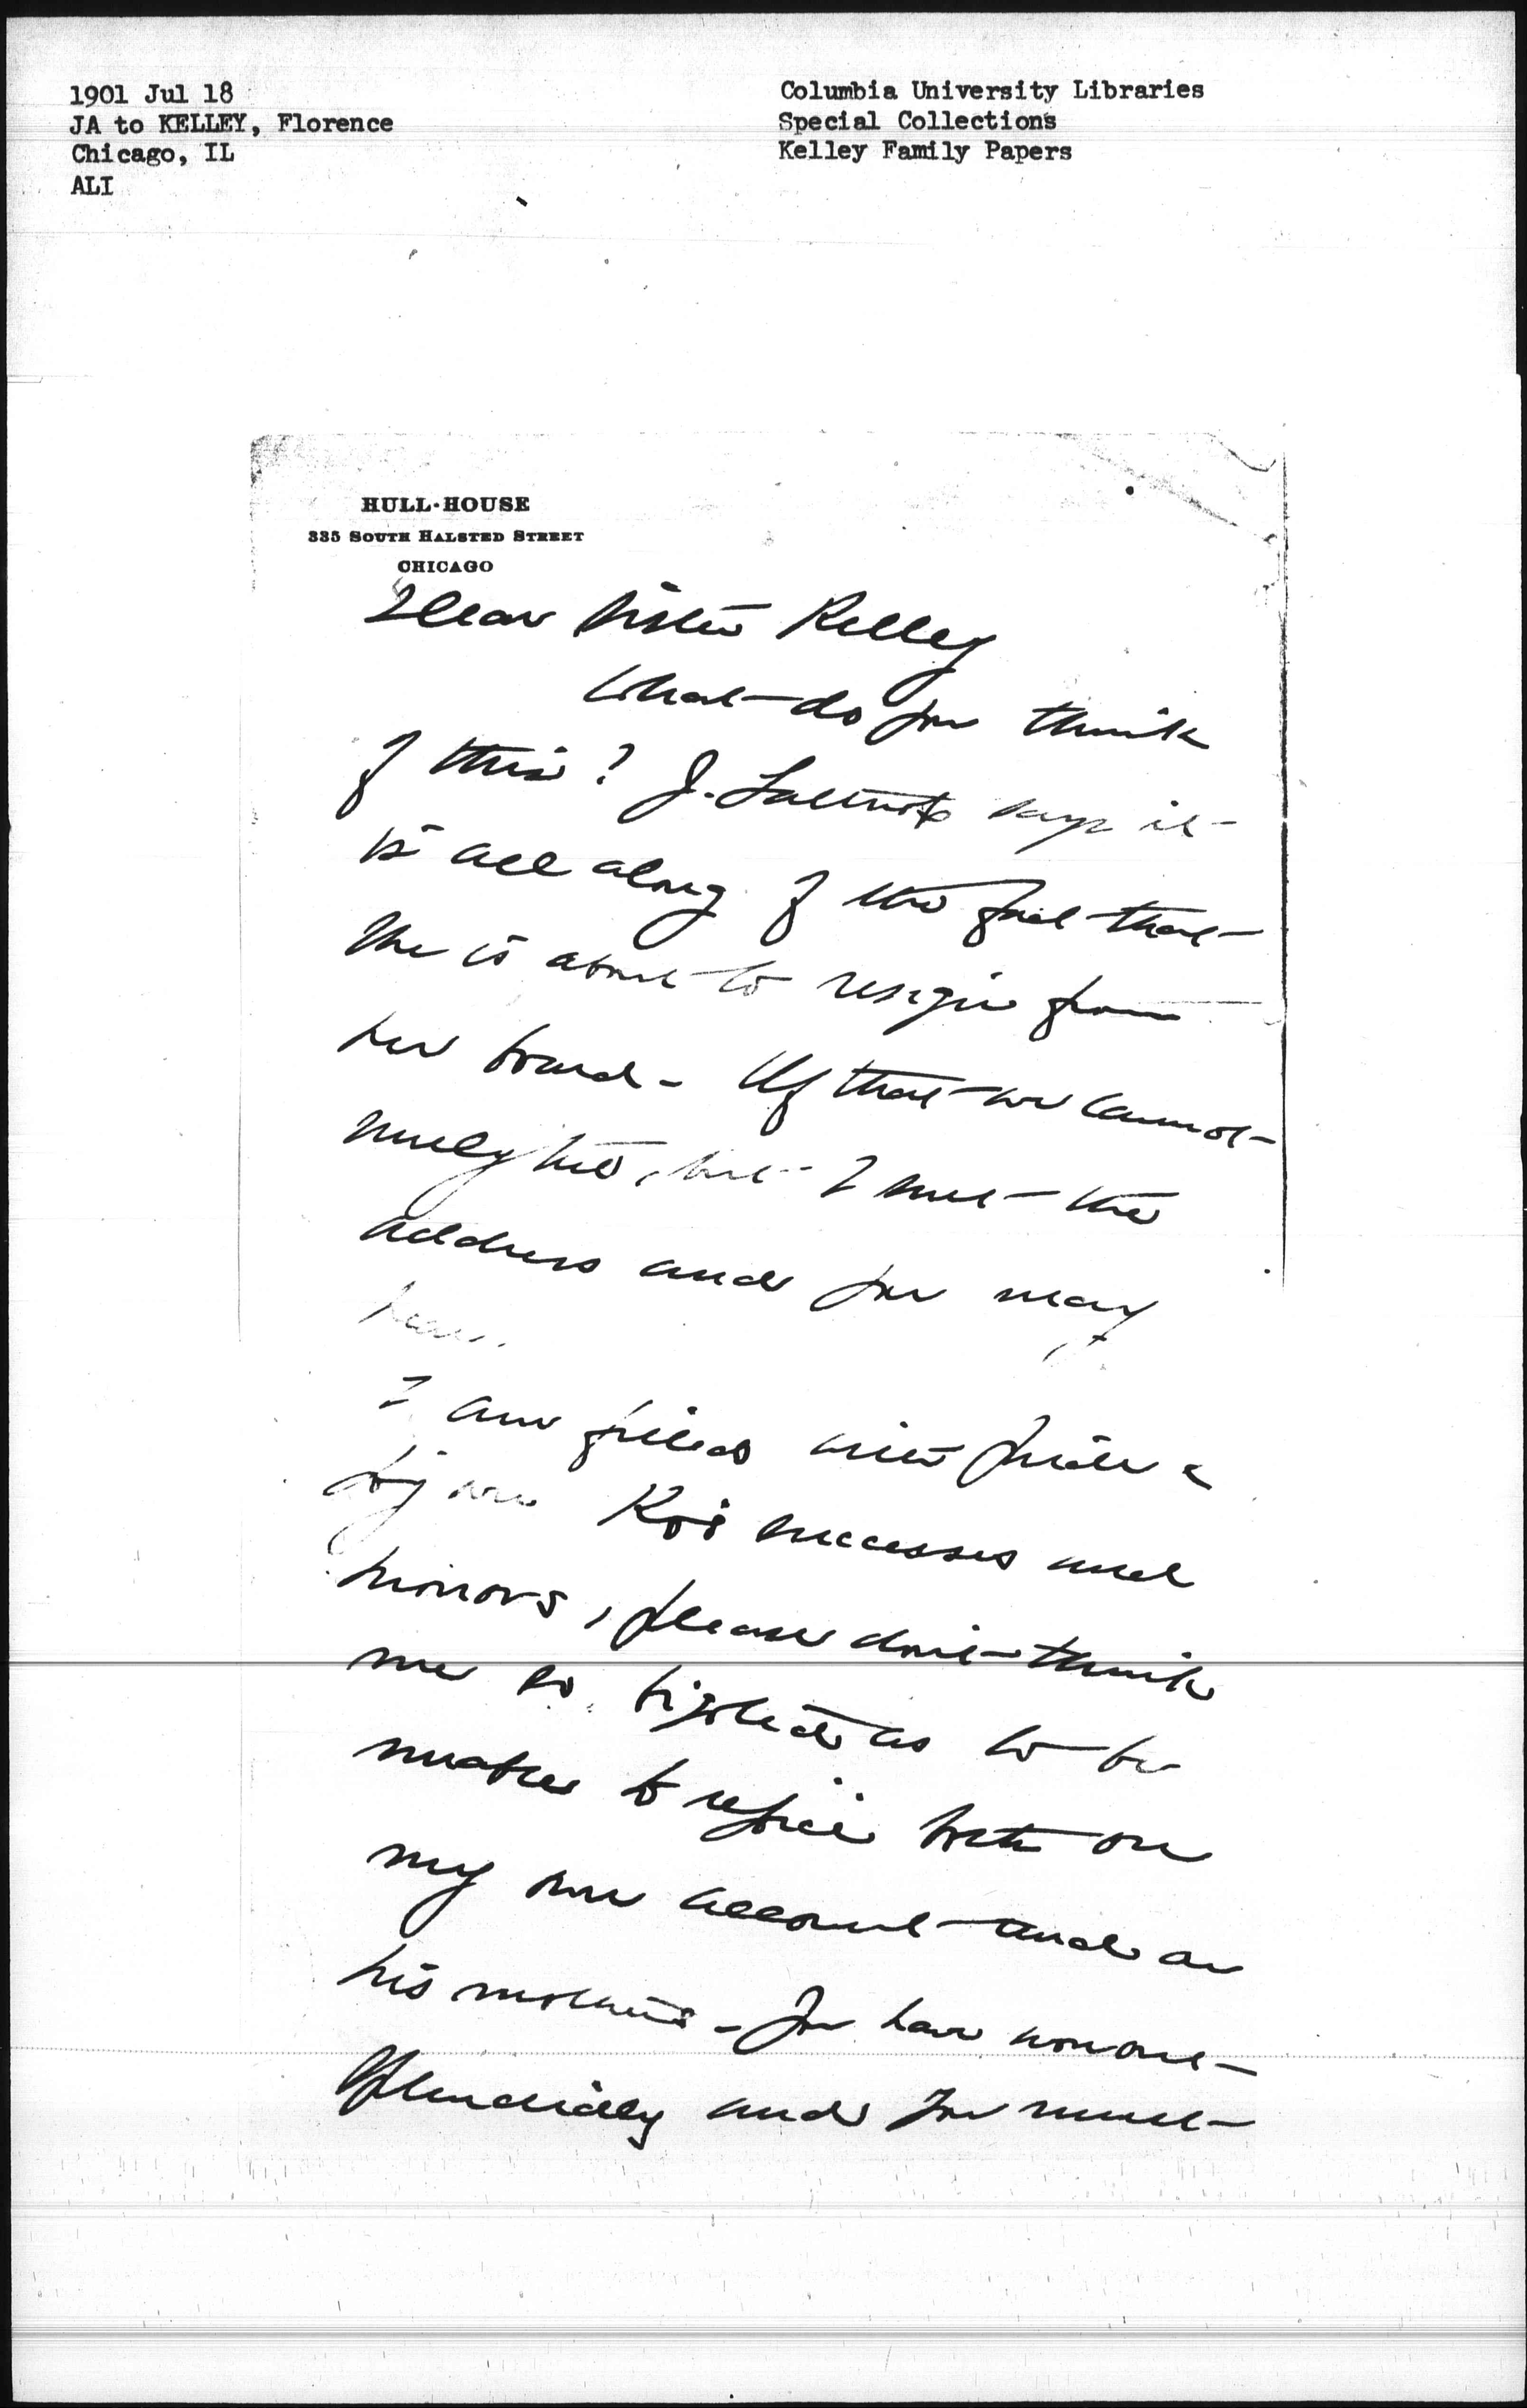 1901 Jul 18
JA to KELLEY, Florence
Chicago, IL
ALI
Columbia University Libraries
Special Collections
Kelley Family Papers
HULL·HOUSE
335 SOUTH HALSTED STREET
CHICAGO
Dear Sister Kelley
What do you think
of this? J. Lathrop says it
is all along of the fact that
she is about to resign from
her board – Of that we cannot
but I sent the
address and you may
hear.
I am filled with pride &
joy over Ko's successes and
honors, please don't think
me so bigoted as to be
unable to rejoice both on
my own account and on
his mother's – You have won out
splendidly and you must